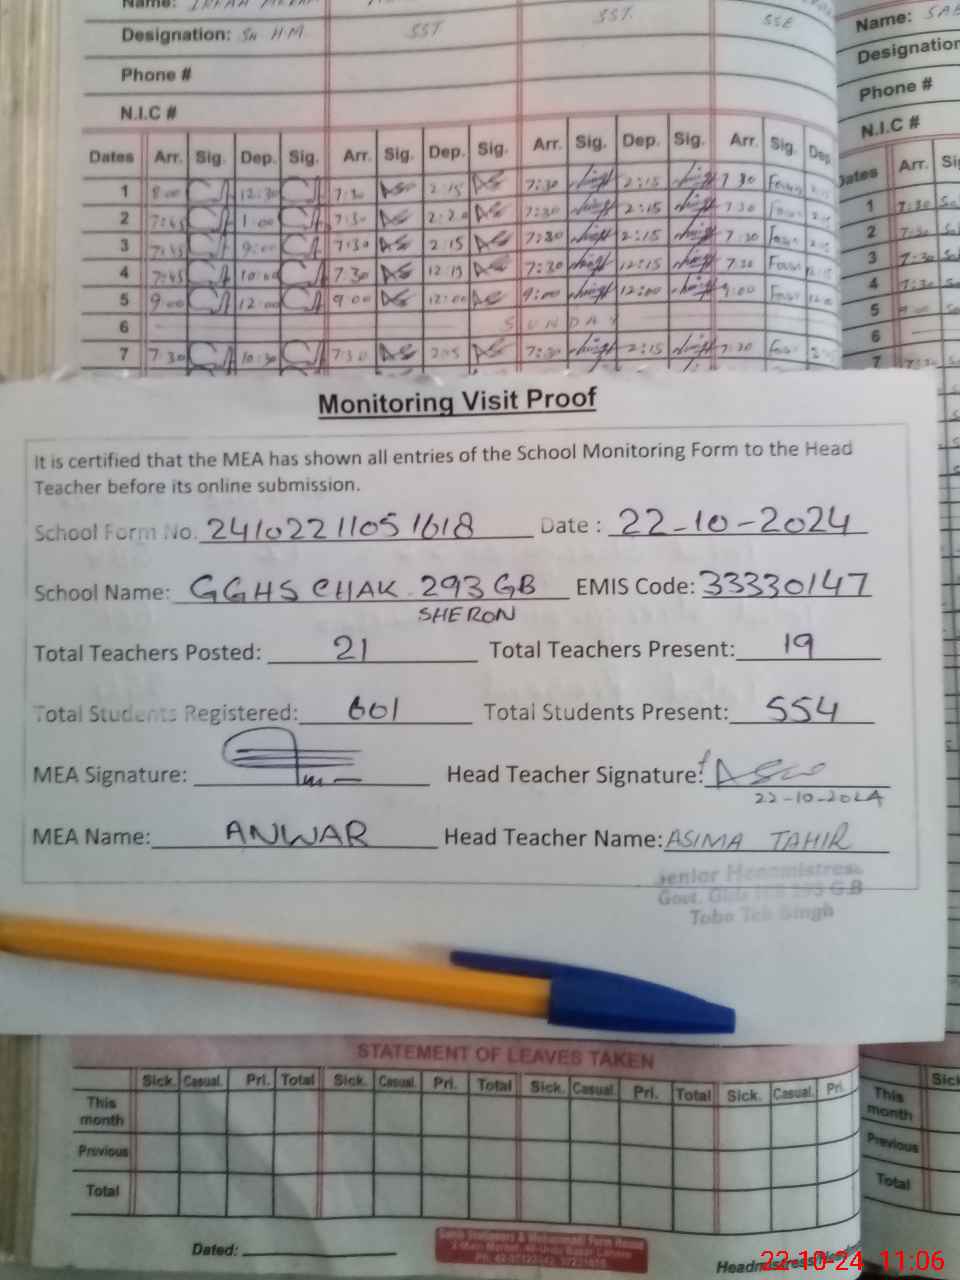 Name:
Designation: Sn HM SST SST. SSE
Phone #
N.I.C #
Dates Arr. Sig. Dep. Sig. Arr. Sig. Dep. Sig. Arr. Sig. Dep. Sig. Arr. Sig. Dep
1 8:00 12:30 7:30 2:15 7:30 2:15 7 30
2 7:45 1:00 7:30 2:20 7:30 2:15 7 30
3 7:45 9:00 7:30 2:15 7:30 2:15 7:30
4 7:45 7:30 12:15 7:30 12:15 7:30
5 9:00 12:00 9:00 12:00 9:00 12:00 9:00
6 SUNDAY
7 7:30 10:30 7:30 7:30 2:15 7:30
Name:
Designation
Phone #
N.I.C #
Dates Arr. Sig
1 7:30
2
3 7:30
4
5
6
7
Monitoring Visit Proof
It is certified that the MEA has shown all entries of the School Monitoring Form to the Head
Teacher before its online submission.
School Form No. 2410221105 1618 Date : 22-10-2024
School Name: GGHS CHAK 293 GB EMIS Code: 33330147
SHERON
Total Teachers Posted: 21 Total Teachers Present: 19
Total Students Registered: 601 Total Students Present: 554
MEA Signature: Head Teacher Signature:
22-10-2024
MEA Name: ANWAR Head Teacher Name: ASIMA TAHIR
Senior Headmistress
Govt. Girls 293 G.B
Toba Tek Singh
STATEMENT OF LEAVES TAKEN
Sick. Casual. Pri. Total Sick. Casual. Pri. Total Sick. Casual. Pri. Total Sick. Casual. Pri.
This
month
Previous
Total
This
month
Previous
Total
Dated:
22-10-24 11:06